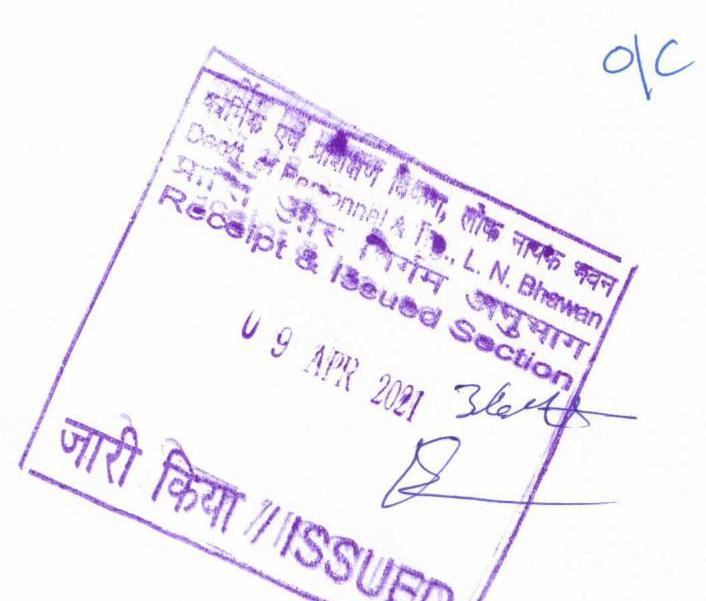 O/C
कार्मिक एवं प्रशिक्षण विभाग, लोक नायक भवन
Deptt. of Personnel & Trg., L. N. Bhawan
प्राप्ति और निर्गम अनुभाग
Receipt & Issued Section
09 APR 2021
जारी किया // ISSUED